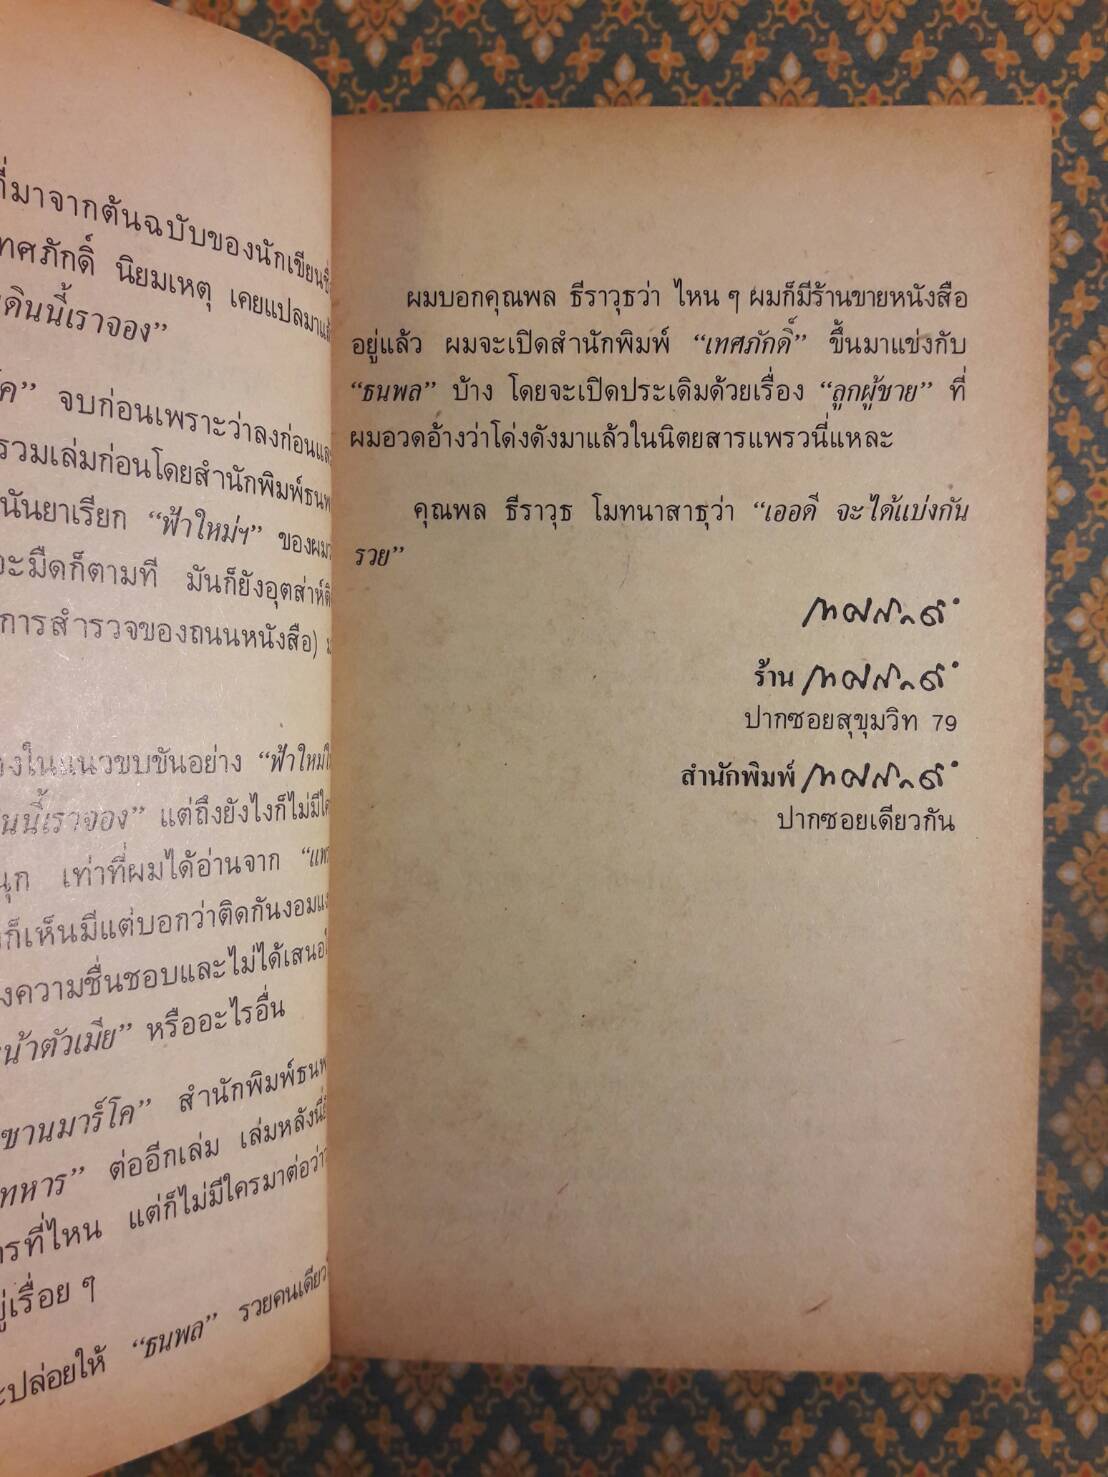 ที่มาจากต้นฉบับของนักเขียน
ทศภักดิ์ นิยมเหตุ เคยแปลมา
ดินนี้เราจอง”
ค” จบก่อนเพราะว่าลงก่อน
รวมเล่มก่อนโดยสำนักพิมพ์ธนพ
นันยาเรียก “ฟ้าใหม่ฯ” ของผม
จะมืดก็ตามที มันก็ยังอุตส่าห์
การสำรวจของถนนหนังสือ)
ในแนวขบขันอย่าง “ฟ้าใหม่
นนี้เราจอง” แต่ถึงยังไงก็ไม่มี
นุก เท่าที่ผมได้อ่านจาก “แพร
ก็เห็นมีแต่บอกว่าติดกันงอมแ
งความชื่นชอบและไม่ได้เสนอ
น้าตัวเมีย” หรืออะไรอื่น
ซานมาร์โค” สำนักพิมพ์ธนพ
ทหาร” ต่ออีกเล่ม เล่มหลังนี้
รที่ไหน แต่ก็ไม่มีใครมาต่อว่า
ยู่เรื่อย ๆ
ะปล่อยให้ “ธนพล” รวยคนเดียว
ผมบอกคุณพล ธีราวุธว่า ไหน ๆ ผมก็มีร้านขายหนังสือ
อยู่แล้ว ผมจะเปิดสำนักพิมพ์ “เทศภักดิ์” ขึ้นมาแข่งกับ
“ธนพล” บ้าง โดยจะเปิดประเดิมด้วยเรื่อง “ลูกผู้ชาย” ที่
ผมอวดอ้างว่าโด่งดังมาแล้วในนิตยสารแพรวนี่แหละ
คุณพล ธีราวุธ โมทนาสาธุว่า “เออดี จะได้แบ่งกัน
รวย”
เทศภักดิ์
ร้าน เทศภักดิ์
ปากซอยสุขุมวิท 79
สำนักพิมพ์ เทศภักดิ์
ปากซอยเดียวกัน